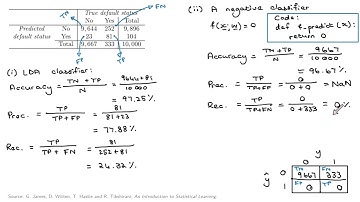 True default status
No Yes Total
Predicted No 9,644 252 9,896
default status Yes 23 81 104
Total 9,667 333 10,000
TP
FN
TP
FP
(i) LDA classifier:
Accuracy = TN + TP / N = 9644 + 81 / 10000
= 97.25 %.
Prec. = TP / TP + FP = 81 / 81 + 23
= 77.88 %.
Rec. = TP / TP + FN = 81 / 252 + 81
= 24.32 %.
(ii) A negative classifier
f(x; w) = 0
Code:
def f_predict(x):
return 0
Accuracy = TN + TP / N = 9667 / 10000
= 96.67 %.
Prec = TP / TP+FP = 0 / 0+0 = NaN
Rec = TP / TP+FN = 0 / 0+333 = 0 %
y
0 1
ŷ 0 TN 9667 FN 333
1 FP 0 TP 0
Source: G. James, D. Witten, T. Hastie and R. Tibshirani, An Introduction to Statistical Learning.